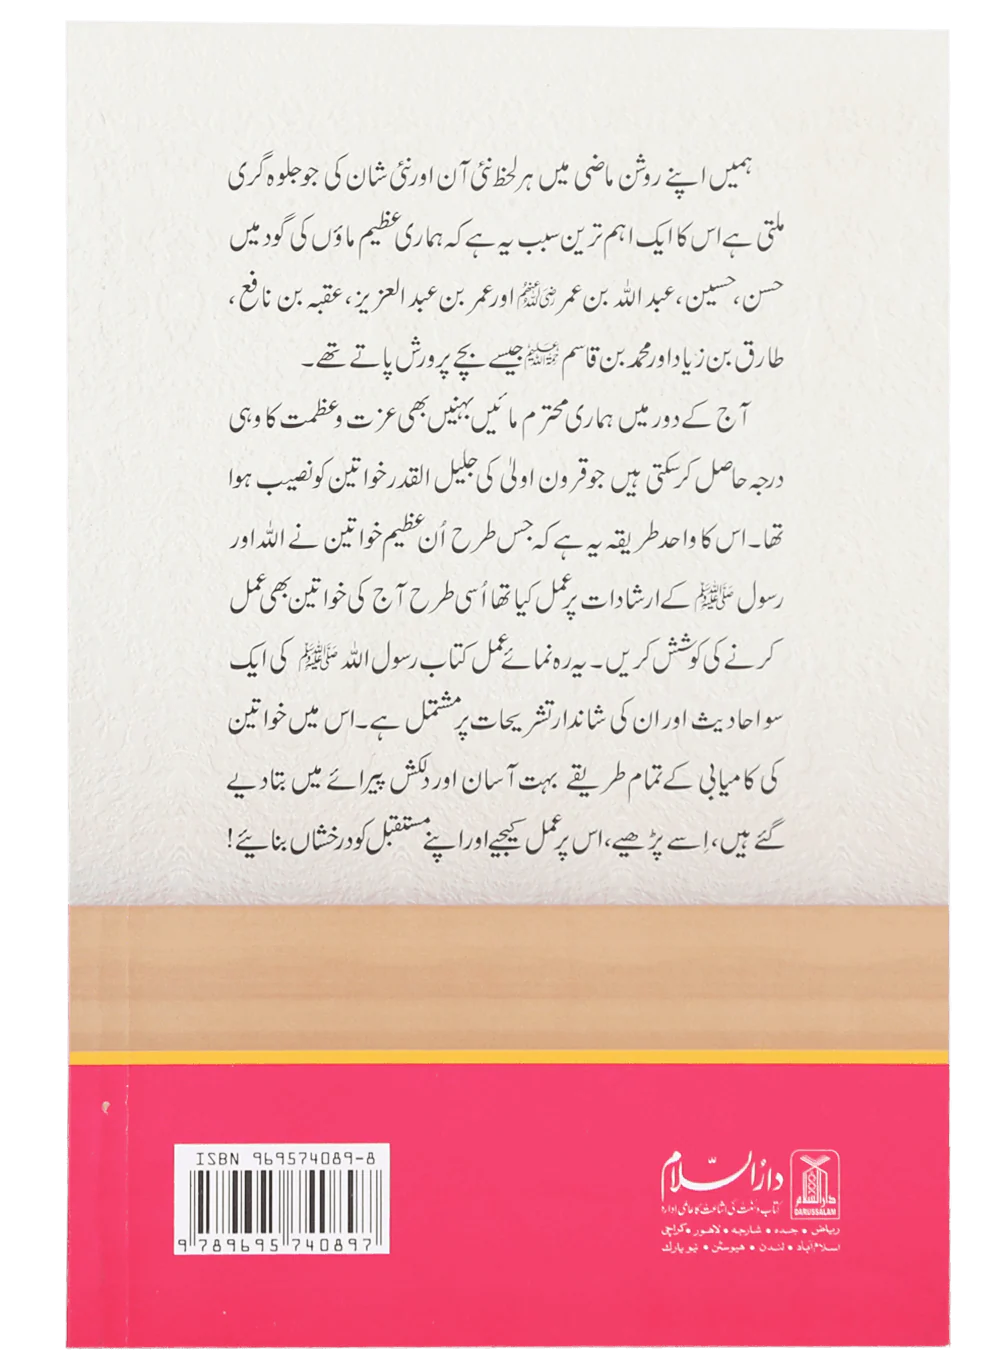 ہمیں اپنے روشن ماضی میں ہر لحظہ نئی آن اور نئی شان کی جو جلوہ گری
ملتی ہے اس کا ایک اہم ترین سبب یہ ہے کہ ہماری عظیم ماؤں کی گود میں
حسن، حسین، عبد اللہ بن عمر رضی اللہ عنہم اور عمر بن عبد العزیز، عقبہ بن نافع،
طارق بن زیاد اور محمد بن قاسم رحمۃ اللہ علیہم جیسے بچے پرورش پاتے تھے۔
آج کے دور میں ہماری محترم مائیں بہنیں بھی عزت و عظمت کا وہی
درجہ حاصل کر سکتی ہیں جو قرون اولیٰ کی جلیل القدر خواتین کو نصیب ہوا
تھا۔ اس کا واحد طریقہ یہ ہے کہ جس طرح اُن عظیم خواتین نے اللہ اور
رسول ﷺ کے ارشادات پر عمل کیا تھا اُسی طرح آج کی خواتین بھی عمل
کرنے کی کوشش کریں۔ یہ رہ نمائے عمل کتاب رسول اللہ ﷺ کی ایک
سو احادیث اور ان کی شاندار تشریحات پر مشتمل ہے۔ اس میں خواتین
کی کامیابی کے تمام طریقے بہت آسان اور دلکش پیرائے میں بتا دیے
گئے ہیں، اِسے پڑھیے، اس پر عمل کیجیے اور اپنے مستقبل کو درخشاں بنائیے!
ISBN 969574089-8
9 789695 740897
دارالسلام
دارالسلام
DARUSSALAM
کتاب و سنت کی اشاعت کا عالمی ادارہ
ریاض • جدہ • شارجہ • لاہور • کراچی
اسلام آباد • لندن • ہیوسٹن • نیو یارک